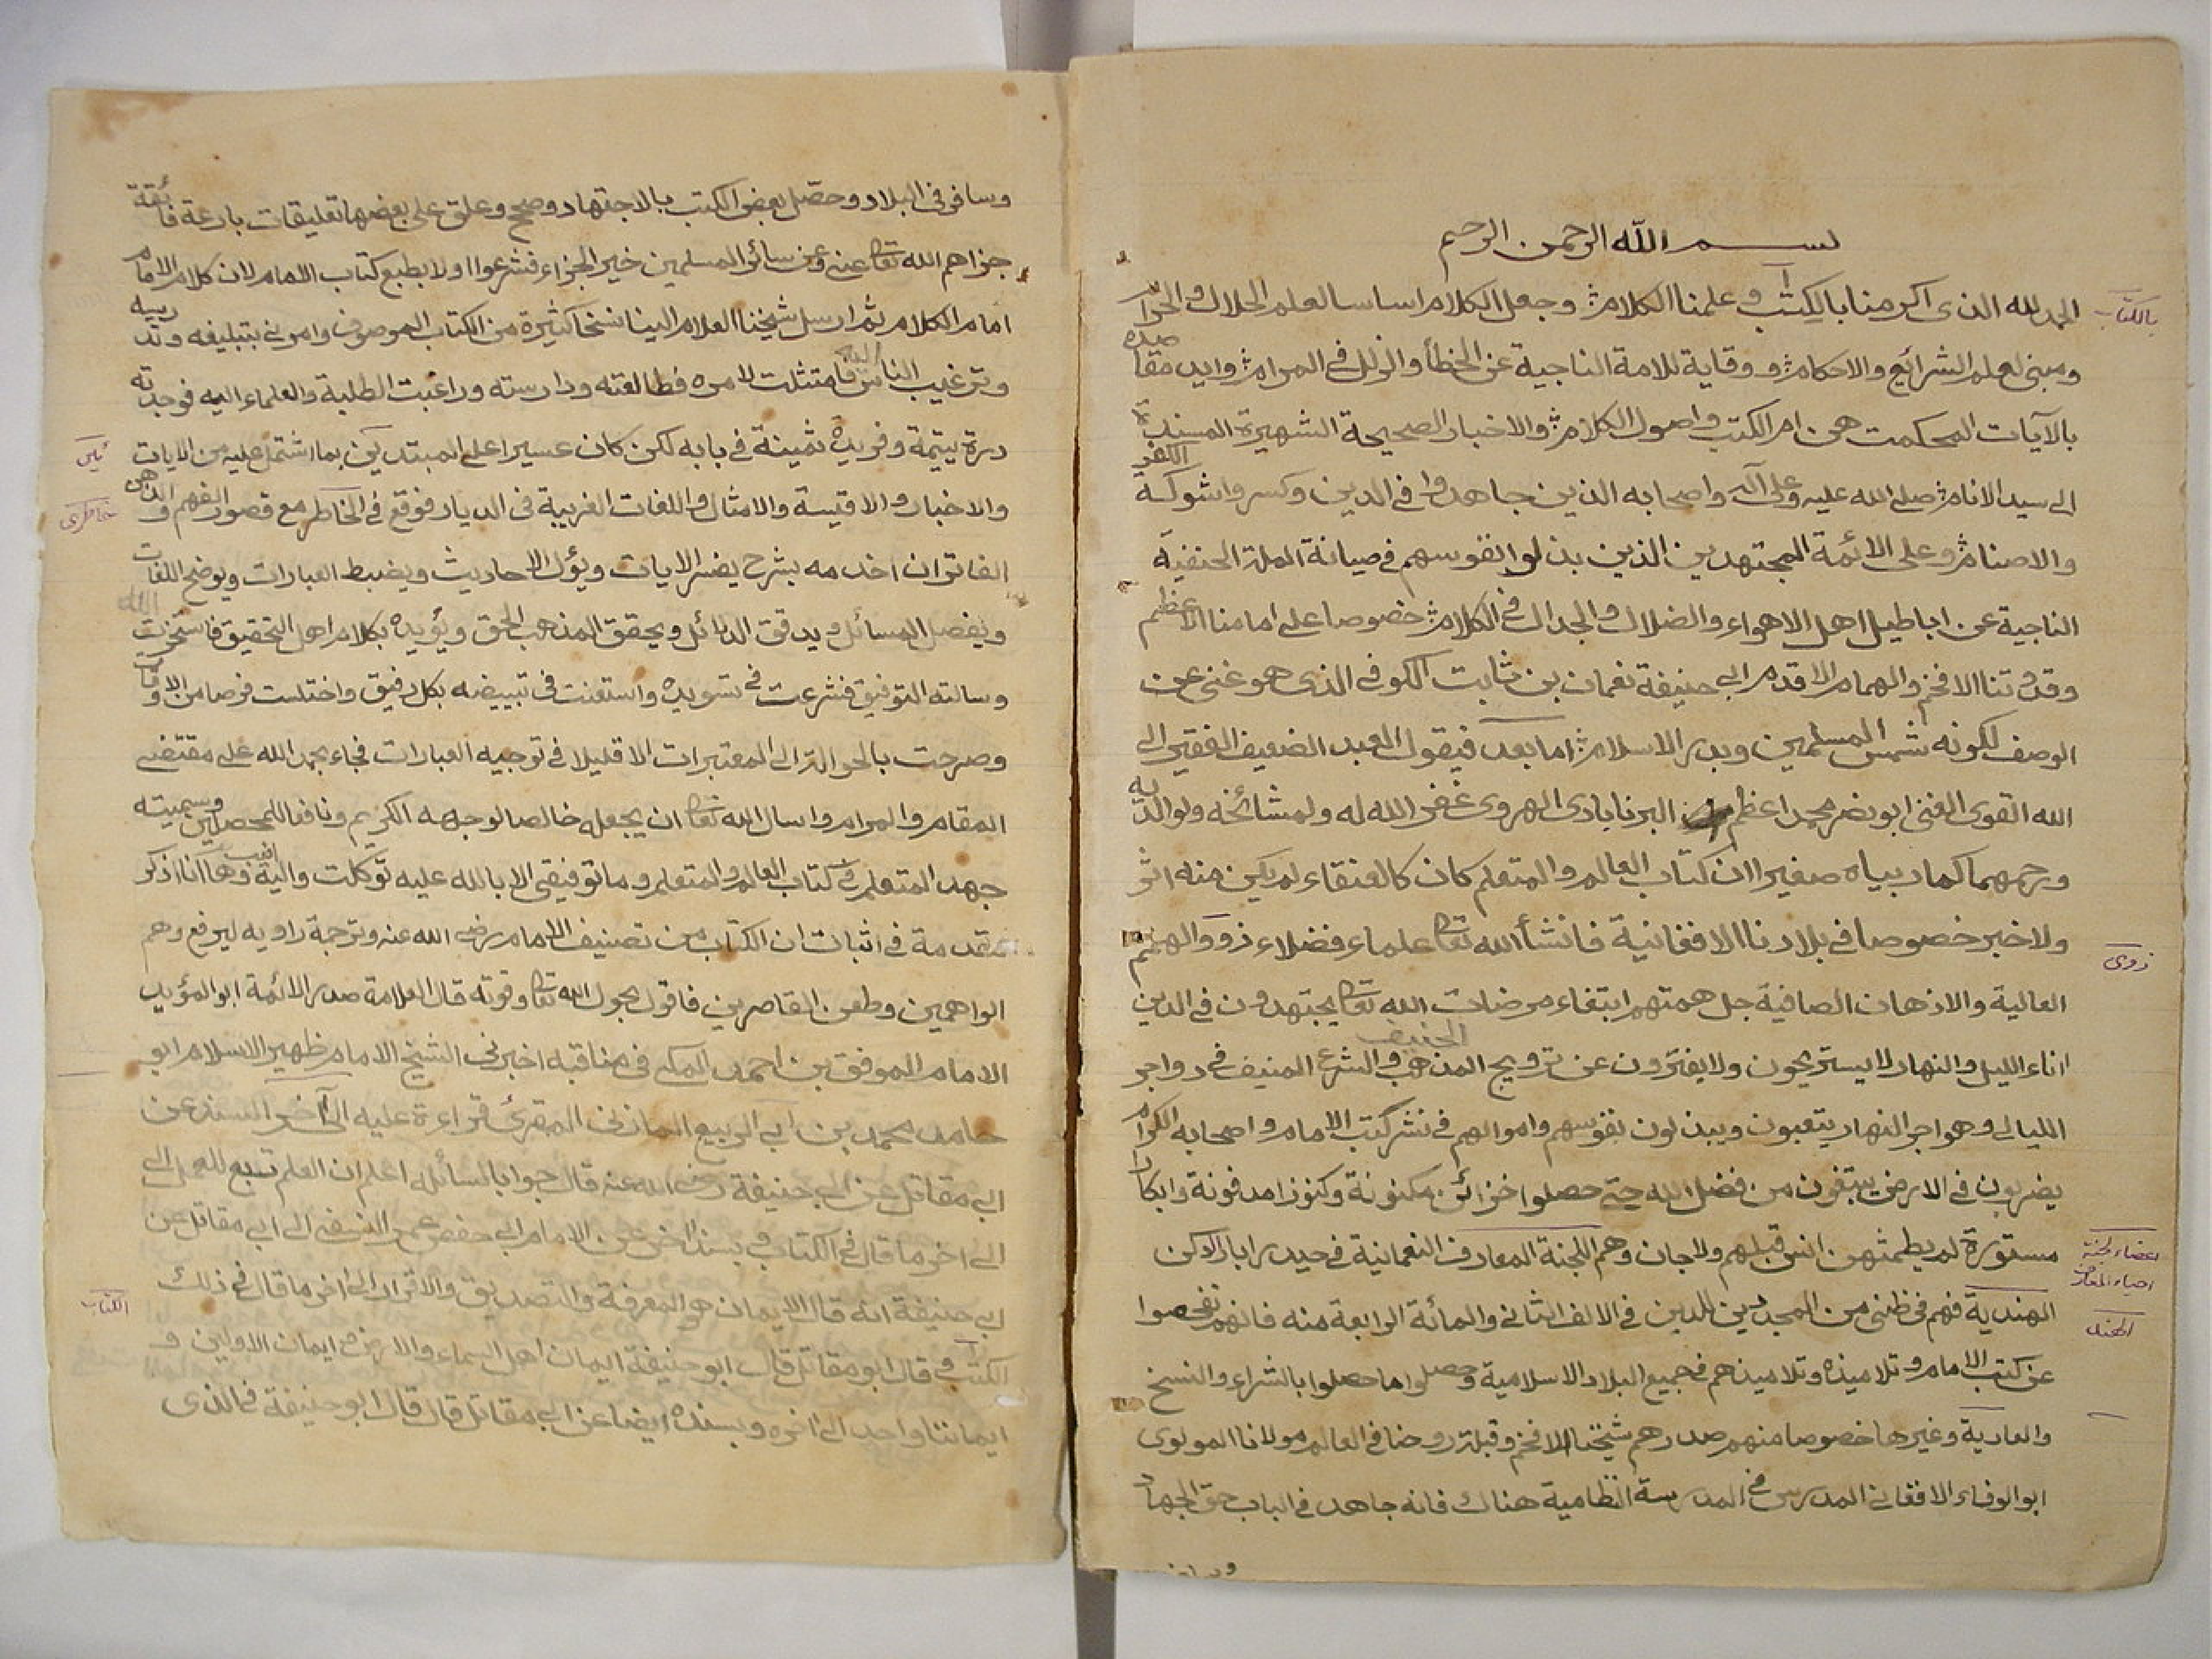 بسم الله الرحمن الرحيم
الحمد لله الذى اكرمنا بالكتب وعلمنا الكلام وجعل الكلام اساسا لعلم الحلال والحرام
بالكتاب
ومبنى لعلم الشرائع والاحكام ووقاية للامة الناجية عن الخطأ والزلل فى المرام وايد مقاصده
بالآيات المحكمت هن ام الكتب واصول الكلام والاخبار الصحيحة الشهيرة المسندة
الى سيد الانام صلے الله عليه وعلى آله واصحابه الذين جاهدوا فى الدين وكسروا شوكة الكفر
والاصنام وعلى الائمة المجتهدين الذين بذلوا نفوسهم فى صيانة الملة الحنفية
الناجية عن اباطيل اهل الاهواء والضلال والجدال فى الكلام خصوصا على امامنا الاعظم
وقدوتنا الافخم والهمام الاقدم ابى حنيفة نعمان بن ثابت الكوفى الذى هو غنى عن
الوصف لكونه شمس المسلمين وبدر الاسلام اما بعد فيقول العبد الضعيف الفقير الى
الله القوى الغنى ابو نصر محمد اعظم البرنابادى الهروى غفر الله له ولمشائخه ولوالديه
ورحمهما كما ربياه صغيرا ان كتاب العالم والمتعلم كان كالعنقاء لم يكن منه اثر
ولا خبر خصوصا فى بلادنا الافغانية فانشأ الله تعا علماء فضلاء ذوو الهمم
ذوى
العالية والاذهان الصافية جل همتهم ابتغاء مرضات الله تعا يجتهدون فى الدين
اناء الليل والنهار لا يستريحون ولا يفترون عن ترويج المذهب الحنيف والشرع المنيف فى دواجر
الليالى وهواجر النهار يتعبون ويبذلون نفوسهم واموالهم فى نشر كتب الامام واصحابه الكرام
يضربون فى الارض يبتغون من فضل الله حتى حصلوا خزائن مكنونة وكنوزا مدفونة وابكارا
مستورة لم يطمثهن انس قبلهم ولا جان وهم اللجنة المعارف النعمانية فى حيدراباد الدكن
اعضاء لجنة
احياء المعارف
الهندية فهم فى ظنى من المجددين للدين فى الالف الثانى والمائة الرابعة منه فانهم تفحصوا
الهند
عن كتب الامام وتلاميذه وتلاميذهم فى جميع البلاد الاسلامية وحصلوا ما حصلوا بالشراء والنسخ
والعارية وغيرها خصوصا منهم صدرهم شيخنا الافخم وقبلة روحنا فى العالم مولانا المولوى
ابو الوفاء الافغانى المدرس فى المدرسة النظامية هناك فانه جاهد فى الباب حق الجهاد
وسافر
وسافر فى البلاد وحصّل بعض الكتب بالاجتهاد وصحح وعلق على بعضها تعليقات بارعة فائقة
جزاهم الله تعا عنه وعن سائر المسلمين خير الجزاء فشرعوا اولا بطبع كتاب الامام لان كلام الامام
امام الكلام ثم ارسل شيخنا العلام الينا نسخا كثيرة من الكتاب الموصوف وامرنى بتبليغه وتدريسه
وترغيب الناس اليه فامتثلت لامره فطالعته ودارسته وراغبت الطلبة والعلماء اليه فوجدته
درة يتيمة وفريدة ثمينة فى بابه لكن كان عسيرا على المبتدين بما اشتمل عليه من الايات
والاخبار والاقيسة والامثال واللغات الغريبة فى الديار فوقع فى الخاطر مع قصور الفهم والذهن
خاطرى
الفاتر ان اخدمه بشرح يفسر الايات ويؤل الاحاديث ويضبط العبارات ويوضح اللغات
ويفصل المسائل ويدقق الدلائل ويحقق المذهب الحق ويؤيده بكلام اهل التحقيق فاستخرت الله
وسالته التوفيق فشرعت فى تسويده واستعنت فى تبييضه بكل رفيق واختلست فرصا من الاوقات
وصرحت بالحوالة الى المعتبرات الا قليلا فى توجيه العبارات فجاء بحمد الله على مقتضے
المقام والمرام واسال الله تعا ان يجعله خالصا لوجهه الكريم ونافعا للمحصلين وسميته
جهد المتعلم فى كتاب العالم والمتعلم وما توفيقى الا بالله عليه توكلت واليه انيب وها انا اذكر
مقدمة فى اثبات ان الكتاب من تصنيف الامام رضى الله عنه وترجمة راويه ليرفع وهم
الواهمين وطعن القاصرين فاقول بحول الله تعا وقوته قال العلامة صدر الائمة ابو المؤيد
الامام الموفق بن احمد المكى فى مناقبه اخبرنى الشيخ الامام ظهير الاسلام ابو
حامد محمد بن ابى الربيع المازنى المقرئ قراءة عليه الى آخر السند عن
ابى مقاتل عن ابى حنيفة رضى الله عنه قال جوابا لسائله اعلم ان العلم تبع للعمل الى
الى اخر ما قال فى الكتاب وبسند اخر عن الامام ابى حفص عمر النسفى الى ابى مقاتل عن
ابى حنيفة انه قال الايمان هو المعرفة والتصديق والاقرار الى اخر ما قال فى ذلك
الكتاب
الكتب وقال ابو مقاتل قال ابو حنيفة ايمان اهل السماء والارض ايمان الاولين و
ايماننا واحد الى اخره وبسنده ايضا عن ابى مقاتل قال قال ابو حنيفة فى الذى